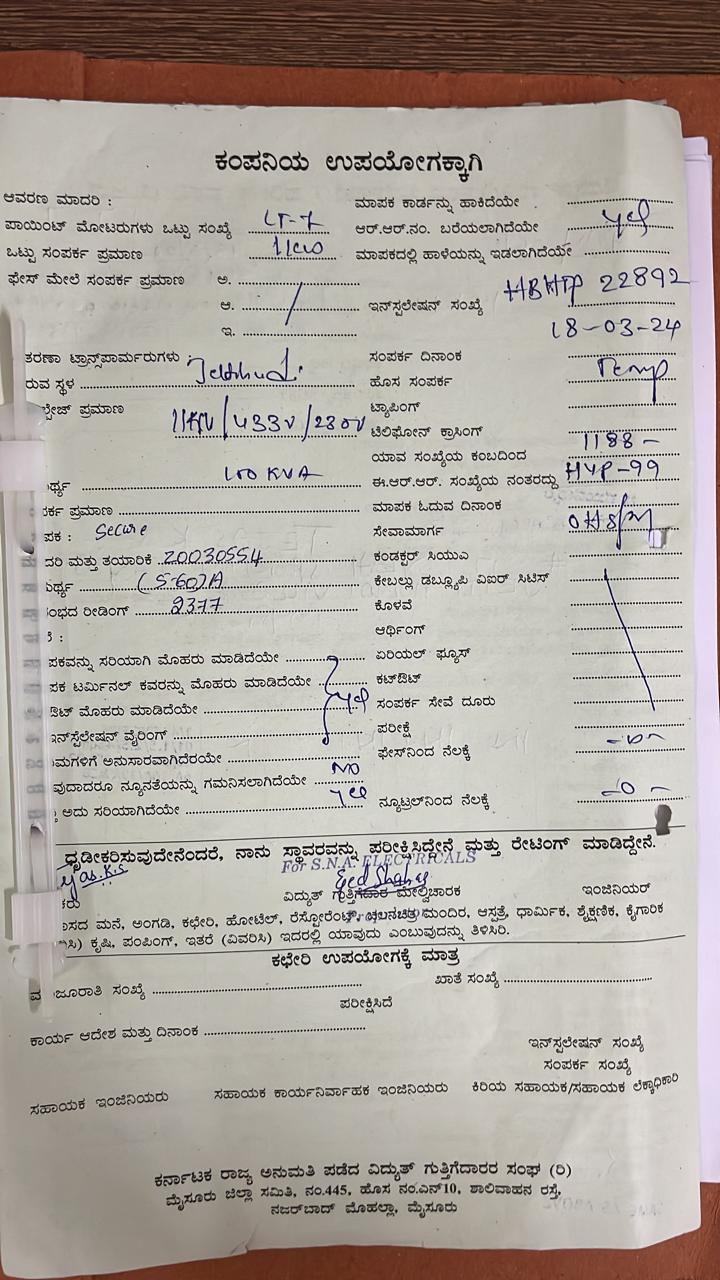 ಕಂಪನಿಯ ಉಪಯೋಗಕ್ಕಾಗಿ
ಆವರಣ ಮಾದರಿ :
ಮಾಪಕ ಕಾರ್ಡನ್ನು ಹಾಕಿದೆಯೇ
ಪಾಯಿಂಟ್ ಮೋಟರುಗಳು ಒಟ್ಟು ಸಂಖ್ಯೆ LT-7
ಆರ್.ಆರ್.ನಂ. ಬರೆಯಲಾಗಿದೆಯೇ yes
ಒಟ್ಟು ಸಂಪರ್ಕ ಪ್ರಮಾಣ
ಮಾಪಕದಲ್ಲಿ ಹಾಳೆಯನ್ನು ಇಡಲಾಗಿದೆಯೇ
ಫೇಸ್ ಮೇಲೆ ಸಂಪರ್ಕ ಪ್ರಮಾಣ ಅ.
ಆ.
ಇನ್‌ಸ್ಪಲೇಷನ್ ಸಂಖ್ಯೆ HBHTP 22892
ಇ.
18-03-24
ತರಣಾ ಟ್ರಾನ್ಸ್‌ಪಾರ್ಮರುಗಳು :
ಸಂಪರ್ಕ ದಿನಾಂಕ
ರುವ ಸ್ಥಳ
ಹೊಸ ಸಂಪರ್ಕ Temp
ಲ್ಟೇಜ್ ಪ್ರಮಾಣ 11KV/433V/230V
ಟ್ಯಾಪಿಂಗ್
ಟೆಲಿಫೋನ್ ಕ್ರಾಸಿಂಗ್
ಯಾವ ಸಂಖ್ಯೆಯ ಕಂಬದಿಂದ 1188-
ರ್ಥ್ಯ 100 KVA
ಈ.ಆರ್.ಆರ್. ಸಂಖ್ಯೆಯ ನಂತರದ್ದು HYP-99
ರ್ಕ ಪ್ರಮಾಣ
ಮಾಪಕ ಓದುವ ದಿನಾಂಕ
ಪಕ : Secure
ಸೇವಾಮಾರ್ಗ
ದರಿ ಮತ್ತು ತಯಾರಿಕೆ 20030554
ಕಂಡಕ್ಟರ್ ಸಿಯುಎ
ರ್ಥ್ಯ (5-60)A
ಕೇಬಲ್ಲು ಡಬ್ಲ್ಯೂಪಿ ವಿಐರ್ ಸಿಟಿಸ್
ಂಭದ ರೀಡಿಂಗ್ 2377
ಕೊಳವೆ
ಆರ್ಥಿಂಗ್
ಪಕವನ್ನು ಸರಿಯಾಗಿ ಮೊಹರು ಮಾಡಿದೆಯೇ
ಏರಿಯಲ್ ಫ್ಯೂಸ್
ಪಕ ಟರ್ಮಿನಲ್ ಕವರನ್ನು ಮೊಹರು ಮಾಡಿದೆಯೇ
ಕಟ್‌ಔಟ್
ಔಟ್ ಮೊಹರು ಮಾಡಿದೆಯೇ yes
ಸಂಪರ್ಕ ಸೇವೆ ದೂರು
ಇನ್‌ಸ್ಪೆಲೇಷನ್ ವೈರಿಂಗ್
ಪರೀಕ್ಷೆ
ಮಗಳಿಗೆ ಅನುಸಾರವಾಗಿದೆರಯೇ
ಫೇಸ್‌ನಿಂದ ನೆಲಕ್ಕೆ
ವುದಾದರೂ ನ್ಯೂನತೆಯನ್ನು ಗಮನಿಸಲಾಗಿದೆಯೇ NO
ಅದು ಸರಿಯಾಗಿದೆಯೇ yes
ನ್ಯೂಟ್ರಲ್‌ನಿಂದ ನೆಲಕ್ಕೆ -0-
ಧೃಡೀಕರಿಸುವುದೇನೆಂದರೆ, ನಾನು ಸ್ಥಾವರವನ್ನು ಪರೀಕ್ಷಿಸಿದ್ದೇನೆ ಮತ್ತು ರೇಟಿಂಗ್ ಮಾಡಿದ್ದೇನೆ.
For S.N.A. ELECTRICALS
ವಿದ್ಯುತ್ ಗುತ್ತಿಗೆದಾರ ಮೇಲ್ವಿಚಾರಕ
ಇಂಜಿನಿಯರ್
ಾಸದ ಮನೆ, ಅಂಗಡಿ, ಕಛೇರಿ, ಹೋಟೆಲ್, ರೆಸ್ಟೋರೆಂಟ್, ಚಲನಚಿತ್ರ ಮಂದಿರ, ಆಸ್ಪತ್ರೆ, ಧಾರ್ಮಿಕ, ಶೈಕ್ಷಣಿಕ, ಕೈಗಾರಿಕ
ಸಿ) ಕೃಷಿ, ಪಂಪಿಂಗ್, ಇತರೆ (ವಿವರಿಸಿ) ಇದರಲ್ಲಿ ಯಾವುದು ಎಂಬುವುದನ್ನು ತಿಳಿಸಿರಿ.
ಕಛೇರಿ ಉಪಯೋಗಕ್ಕೆ ಮಾತ್ರ
ಜೂರಾತಿ ಸಂಖ್ಯೆ
ಖಾತೆ ಸಂಖ್ಯೆ
ಪರೀಕ್ಷಿಸಿದೆ
ಕಾರ್ಯ ಆದೇಶ ಮತ್ತು ದಿನಾಂಕ
ಇನ್‌ಸ್ಪಲೇಷನ್ ಸಂಖ್ಯೆ
ಸಂಪರ್ಕ ಸಂಖ್ಯೆ
ಸಹಾಯಕ ಇಂಜಿನಿಯರು
ಸಹಾಯಕ ಕಾರ್ಯನಿರ್ವಾಹಕ ಇಂಜಿನಿಯರು
ಕಿರಿಯ ಸಹಾಯಕ/ಸಹಾಯಕ ಲೆಕ್ಕಾಧಿಕಾರಿ
ಕರ್ನಾಟಕ ರಾಜ್ಯ ಅನುಮತಿ ಪಡೆದ ವಿದ್ಯುತ್ ಗುತ್ತಿಗೆದಾರರ ಸಂಘ (ರಿ)
ಮೈಸೂರು ಜಿಲ್ಲಾ ಸಮಿತಿ, ನಂ.445, ಹೊಸ ನಂ.ಎನ್10, ಶಾಲಿವಾಹನ ರಸ್ತೆ,
ನಜರ್‌ಬಾದ್ ಮೊಹಲ್ಲಾ, ಮೈಸೂರು